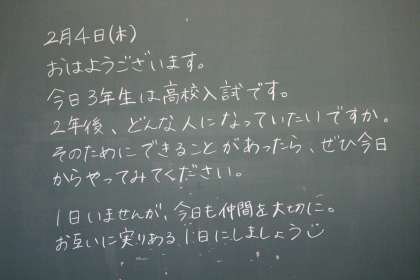 2月4日(木)
おはようございます。
今日3年生は高校入試です。
2年後、どんな人になっていたいですか。
そのためにできることがあったら、ぜひ今日
からやってみてください。
1日いませんが、今日も仲間を大切に。
お互いに実りある1日にしましょう